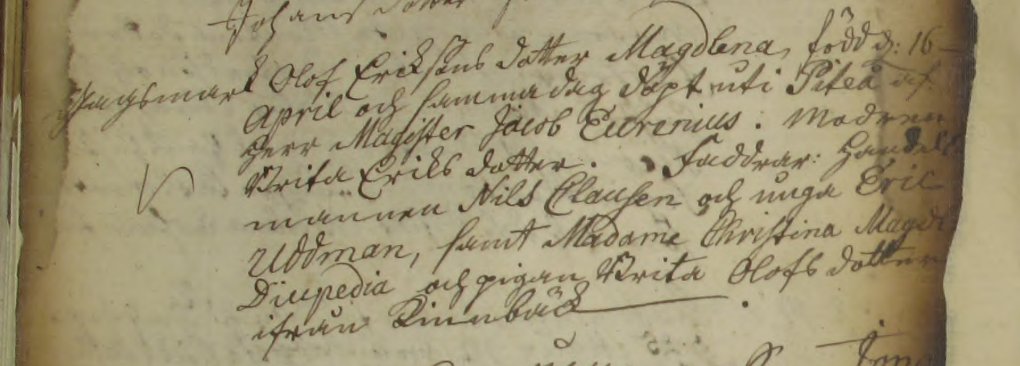 Johans dotter
Jagsmark Olof Ericksons dotter Magdlena, född d: 16
April och samma dag döpt uti Piteå af
Herr Magister Jacob Eurenius. Modren
Brita Erics dotter. Faddrar: Handels
mannen Nils Clausen och unga Eric
Uddman, samt Madame Christina Magd:
Diupedia och pigan Brita Olofs dotter
ifrån Kinnbäck